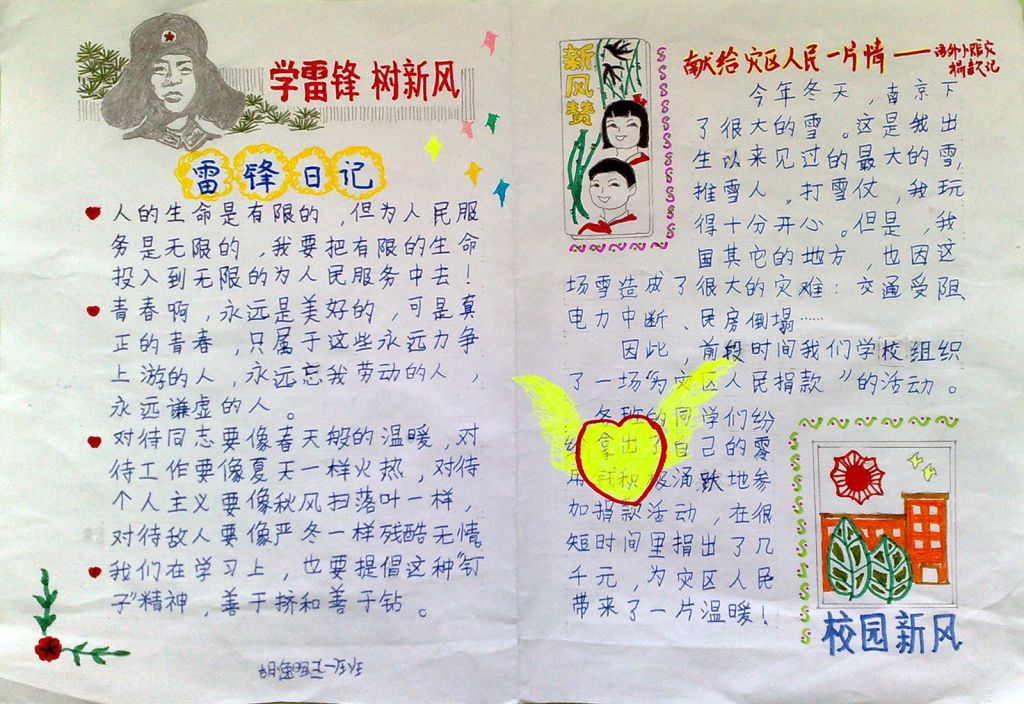 学雷锋 树新风
雷锋日记
人的生命是有限的，但为人民服
务是无限的，我要把有限的生命
投入到无限的为人民服务中去！
青春啊，永远是美好的，可是真
正的青春，只属于这些永远力争
上游的人，永远忘我劳动的人，
永远谦虚的人。
对待同志要像春天般的温暖，对
待工作要像夏天一样火热，对待
个人主义要像秋风扫落叶一样，
对待敌人要像严冬一样残酷无情
我们在学习上，也要提倡这种“钉
子”精神，善于挤和善于钻。
新风赞
献给灾区人民一片情——
捐款记
今年冬天，南京下
了很大的雪。这是我出
生以来见过的最大的雪，
推雪人。打雪仗，我玩
得十分开心。但是，我
国其它的地方，也因这
场雪造成了很大的灾难：交通受阻
电力中断、民房倒塌……
因此，前段时间我们学校组织
了一场“为灾区人民捐款”的活动。
各班的同学们纷
纷拿出了自己的零
用钱积极涌跃地参
加捐款活动，在很
短时间里捐出了几
千元，为灾区人民
带来了一片温暖！
校园新风